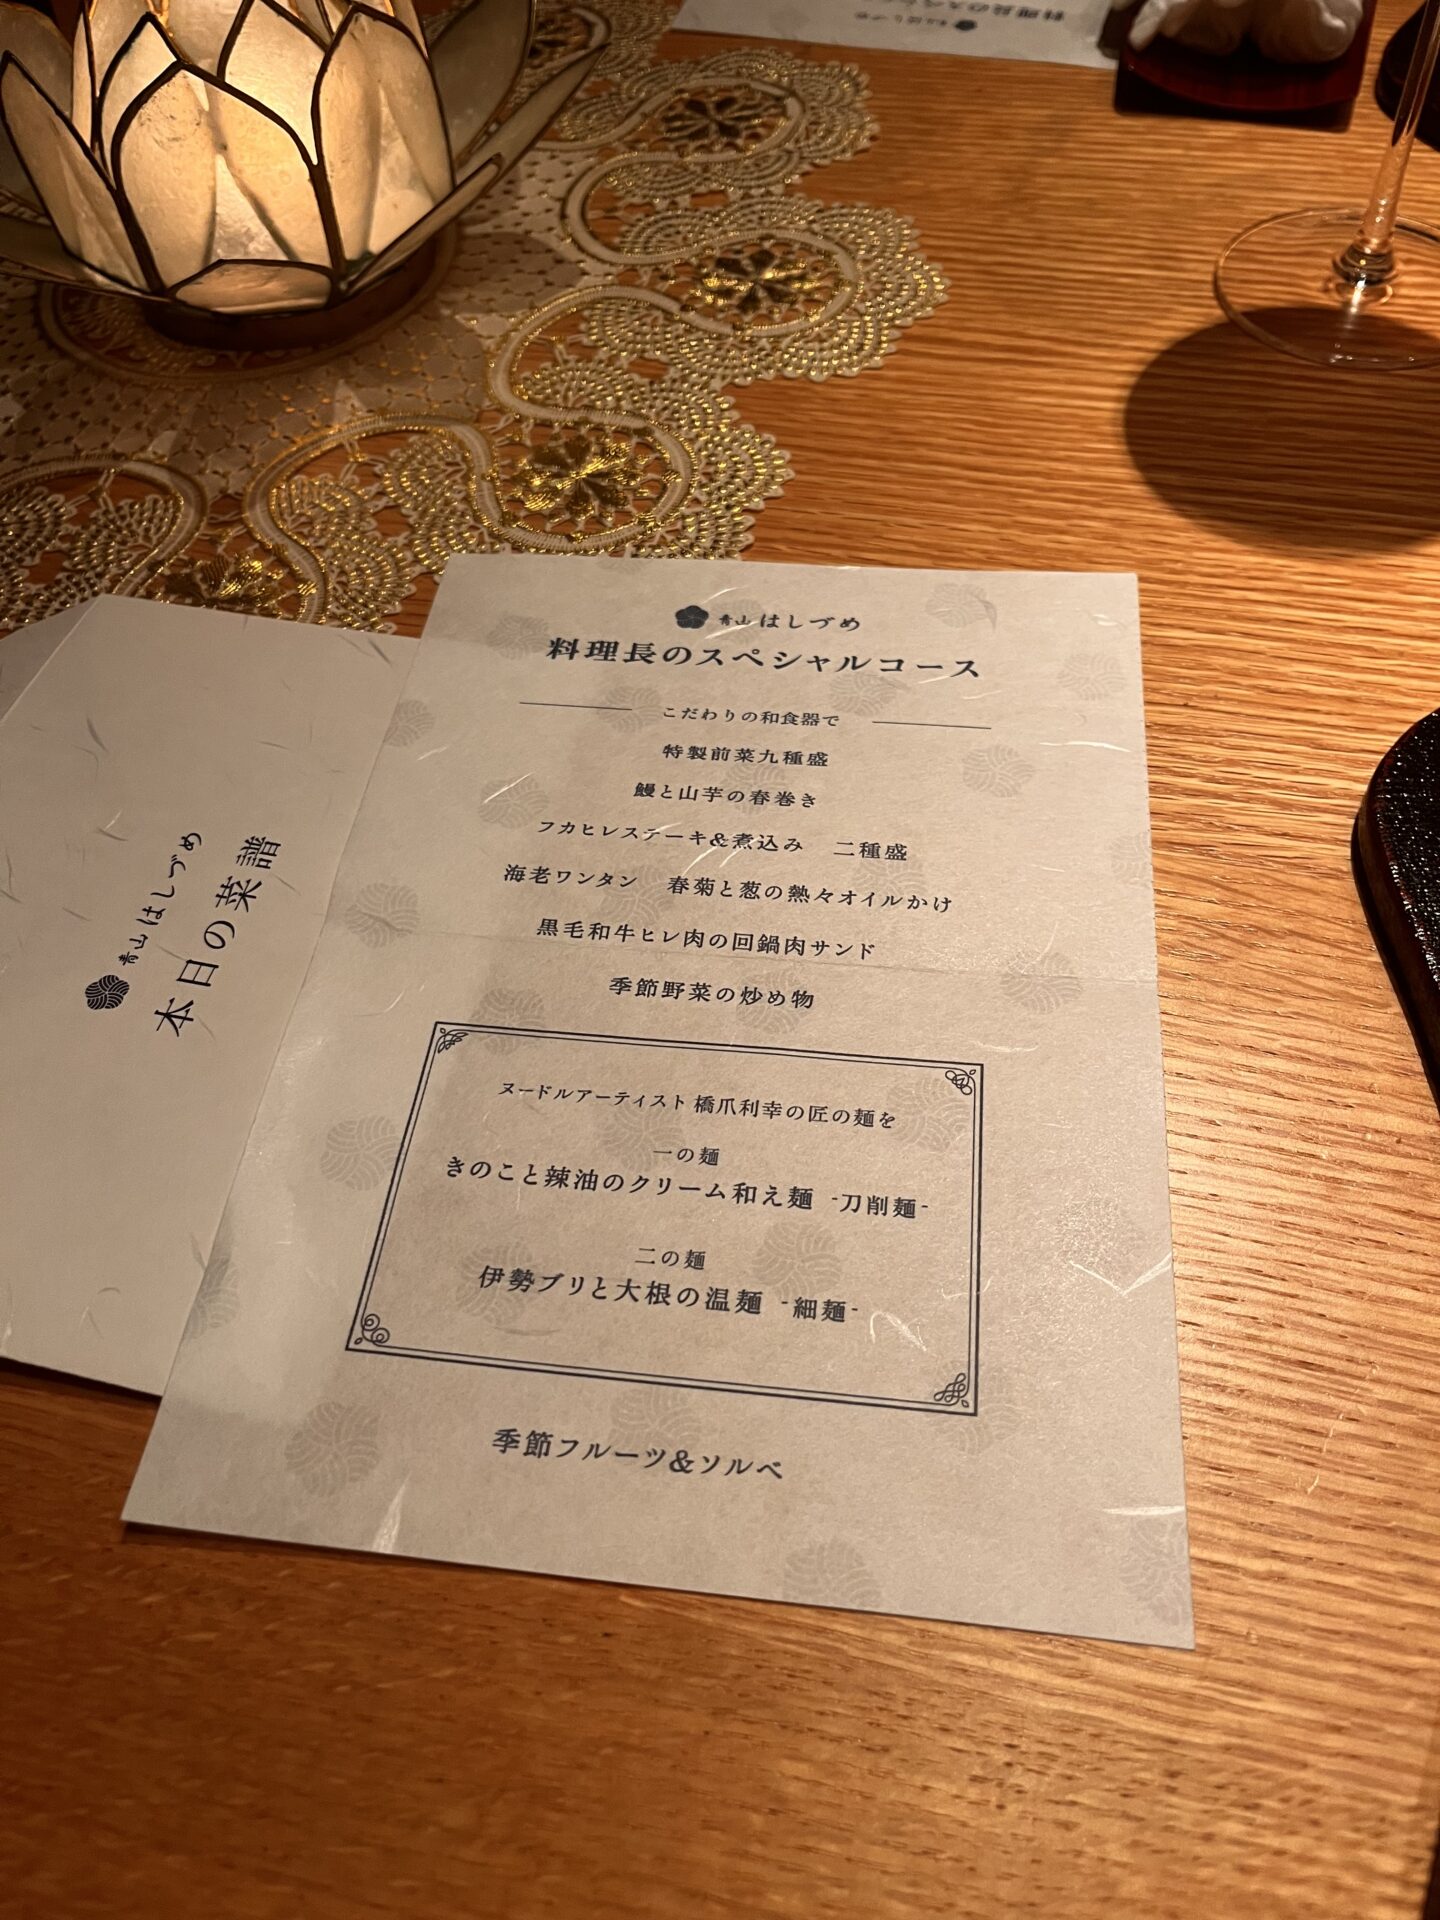 青山 はしづめ
料理長のスペシャルコース
こだわりの和食器で
特製前菜九種盛
鰻と山芋の春巻き
フカヒレステーキ&煮込み 二種盛
海老ワンタン 春菊と葱の熱々オイルかけ
黒毛和牛ヒレ肉の回鍋肉サンド
季節野菜の炒め物
ヌードルアーティスト 橋爪利幸の匠の麺を
一の麺
きのこと辣油のクリーム和え麺 -刀削麺-
二の麺
伊勢ブリと大根の温麺 -細麺-
季節フルーツ&ソルベ
青山 はしづめ
本日の菜譜
青山 はしづめ
料理長のスペ